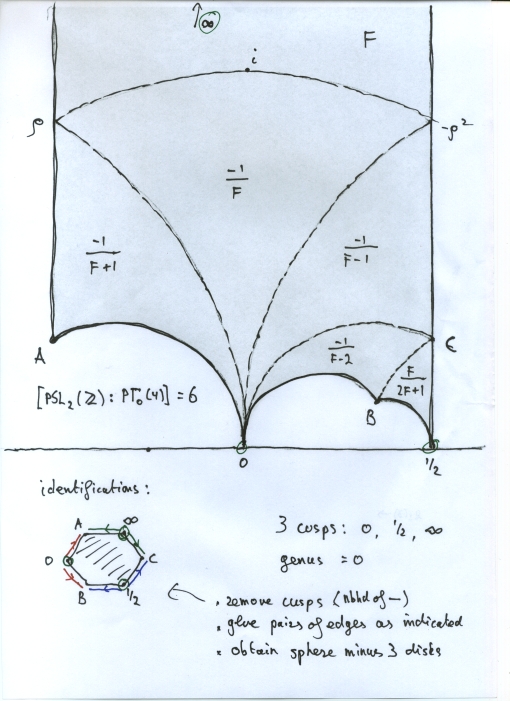 ∞
F
i
ρ
-ρ²
-1/F
-1/F+1
-1/F-1
A
-1/F-2
C
F/2F+1
B
[PSL₂(ℤ): PΓ₀(4)] = 6
0
1/2
identifications:
A
∞
0
C
B
1/2
3 cusps: 0, 1/2, ∞
genus = 0
. remove cusps (nbhd of —)
. glue pairs of edges as indicated
. obtain sphere minus 3 disks